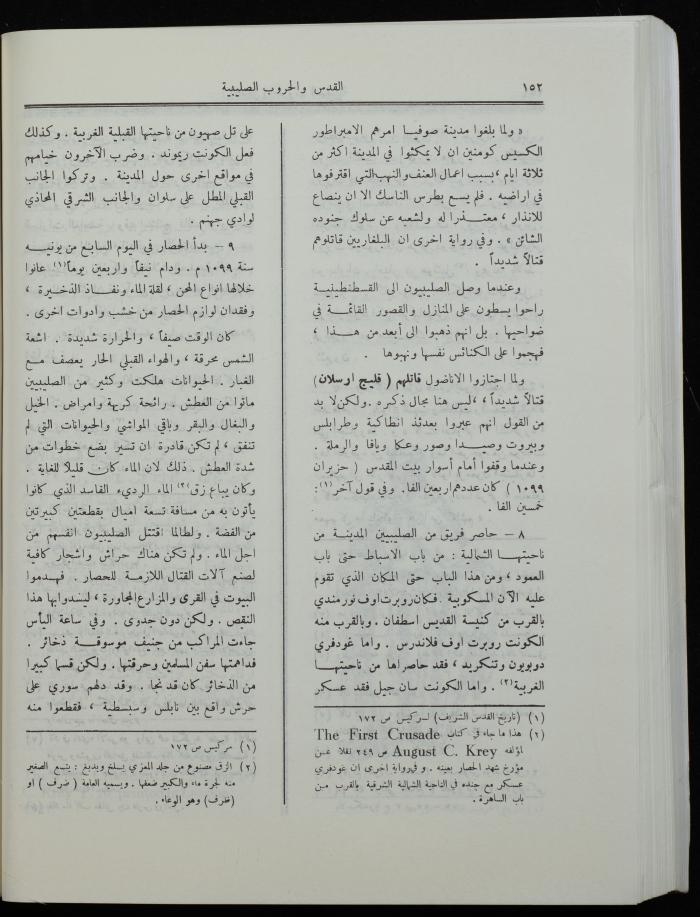 ١٥٢
القدس والحروب الصليبية
« ولما بلغوا مدينة صوفيا امرهم الامبراطور
الكسيس كومنين ان لا يمكثوا في المدينة اكثر من
ثلاثة ايام ، بسبب اعمال العنف والنهب التي اقترفوها
في اراضيه . فلم يسع بطرس الناسك الا ان ينصاع
للانذار ، معتذرا له ولشعبه عن سلوك جنوده
الشائن » . وفي رواية اخرى ان البلغاريين قاتلوهم
قتالاً شديداً .
وعندما وصل الصليبيون الى القسطنطينية
راحوا يسطون على المنازل والقصور القائمة في
ضواحيها . بل انهم ذهبوا الى أبعد من هذا ،
فهجموا على الكنائس نفسها ونهبوها .
ولما اجتازوا الاناضول قاتلهم ( قليج ارسلان )
قتالاً شديداً ، ليس هنا مجال ذكره . ولكن لا بد
من القول انهم عبروا بعدئذ انطاكية وطرابلس
وبيروت وصيدا وصور وعكا ويافا والرملة .
وعندما وقفوا أمام أسوار بيت المقدس ( حزيران
١٠٩٩ ) كان عددهم اربعين الفا . وفي قول آخر (١) :
خمسين الفا .
٨ – حاصر فريق من الصليبيين المدينة من
ناحيتها الشمالية : من باب الاسباط حتى باب
العمود ، ومن هذا الباب حتى المكان الذي تقوم
عليه الآن المسكوبية . فكان روبرت اوف نورمندي
بالقرب من كنيسة القديس اسطفان . وبالقرب منه
الكونت روبرت اوف فلاندرس . واما غودفري
دوبويون وتنكريد ، فقد حاصراها من ناحيتها
الغربية (٢) . واما الكونت سان جيل فقد عسكر
(١) (تاريخ القدس الشريف) لسركيس ص ١٧٢
(٢) هذا ما جاء في كتاب The First Crusade
لمؤلفه August C. Krey ص ٢٤٩ نقلا عن
مؤرخ شهد الحصار بعينه . وفي رواية اخرى ان غودفري
عسكر مع جنده في الناحية الشمالية الشرقية بالقرب من
باب الساهرة .
على تل صهيون من ناحيتها القبلية الغربية . وكذلك
فعل الكونت ريموند . وضرب الآخرون خيامهم
في مواقع اخرى حول المدينة . وتركوا الجانب
القبلي المطل على سلوان والجانب الشرقي المحاذي
لوادي جهنم .
٩ – بدأ الحصار في اليوم السابع من يونيه
سنة ١٠٩٩ م . ودام نيفاً واربعين يوماً (١) عانوا
خلالها انواع المحن ، لقلة الماء ونفاذ الذخيرة ،
وفقدان لوازم الحصار من خشب وادوات اخرى .
كان الوقت صيفاً ، والحرارة شديدة . اشعة
الشمس محرقة ، والهواء القبلي الحار يعصف مع
الغبار . الحيوانات هلكت وكثير من الصليبيين
ماتوا من العطش . رائحة كريهة وامراض . الخيل
والبغال والبقر وباقي المواشي والحيوانات التي لم
تنفق ، لم تكن قادرة ان تسير بضع خطوات من
شدة العطش . ذلك لان الماء كان قليلاً للغاية .
وكان يباع زق (٢) الماء الرديء الفاسد الذي كانوا
يأتون به من مسافة تسعة اميال بقطعتين كبيرتين
من الفضة . ولطالما اقتتل الصليبيون انفسهم من
اجل الماء . ولم تكن هناك حراش واشجار كافية
لصنع آلات القتال اللازمة للحصار . فهدموا
البيوت في القرى والمزارع المجاورة ، ليسدوا بها هذا
النقص . ولكن دون جدوى . وفي ساعة اليأس
جاءت المراكب من جنيف موسوقة ذخائر .
فداهمتها سفن المسلمين وحرقتها . ولكن قسما كبيرا
من الذخائر كان قد نجا . وقد دلهم سوري على
حرش واقع بين نابلس وسبسطية ، فقطعوا منه
(١) سركيس ص ١٧٢
(٢) الزق مصنوع من جلد المعزي يسلخ ويدبغ : يتسع الصغير
منه لجرة ماء والكبير ضعفها . ويسميه العامة ( ضرف ) او
(ظرف) وهو الوعاء .